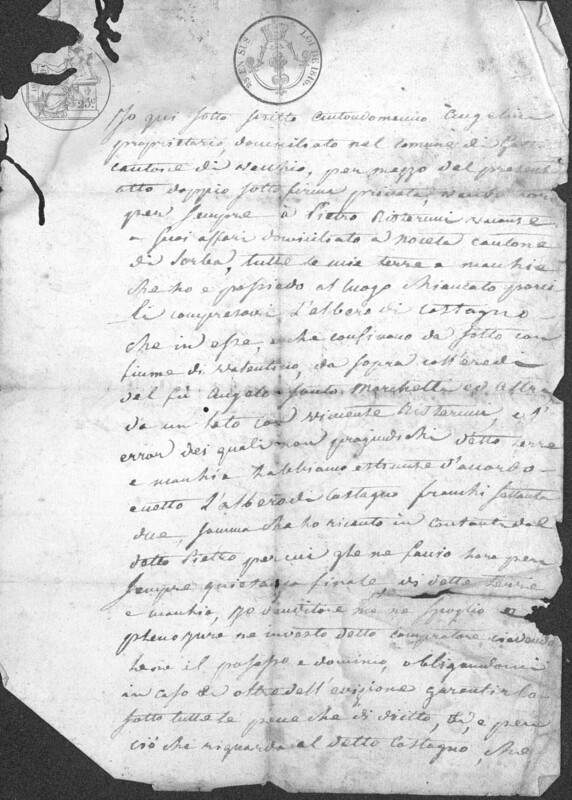 25c
EN SUS LOI DE 1816.
Io qui sotto scritto Antondomenico Angelini
proprietario domiciliato nel comune di
cantone di Vecchio, per mezzo del presente
atto doppio sotto firma privata, vendo
per sempre à Pietro Risterucci
a suoi affari domiciliato a Noceta cantone
di Sorba, tutte le mie terre a machie
che ho e possiedo al luogo chiamato
li compresovi l'albero di castagno
che in esse, e che confinano da sotto con
fiume di Valentino, da sopra coll'eredi
del fù Angelo Santo Marchetti ed altri
da un lato con Vincente Risterucci, e l'
error dei quali non pregiudichi dette terre
e machia l'abbiamo estimate d'accordo
cuotto l'albero di castagno franchi settanta
due, somma che ho ricevuto in contanti dal
detto Pietro per cui gle ne faccio hora per
sempre quietanza finale di dette terre
e machia, Io venditore me ne spoglio e
pleno jure ne investo detto compratore, cedendo
bene il possesso e dominio, obligandomi
in caso di oltre dell'evizione garantirlo
sotto tutte le pene che di diritto, e per
ciò che riguarda al detto castagno, che